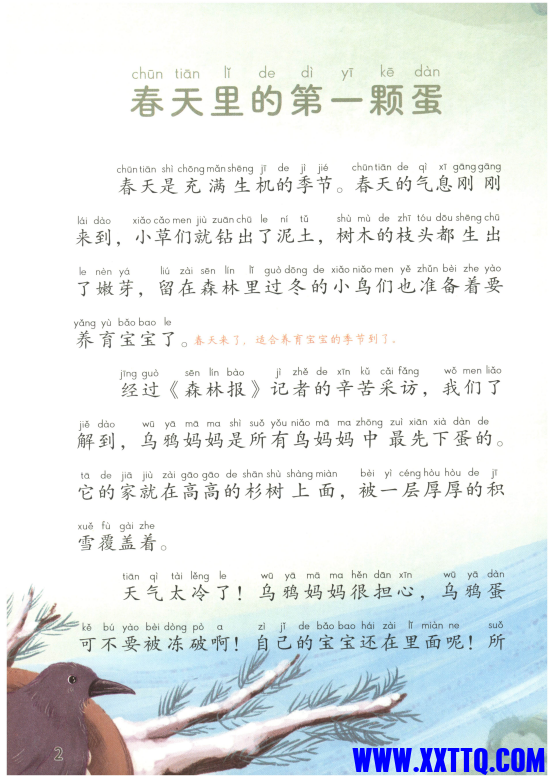 chūn tiān lǐ de dì yī kē dàn
春天里的第一颗蛋
chūn tiān shì chōng mǎn shēng jī de jì jié chūn tiān de qì xī gāng gāng
春天是充满生机的季节。春天的气息刚刚
lái dào xiǎo cǎo men jiù zuān chū le ní tǔ shù mù de zhī tóu dōu shēng chū
来到，小草们就钻出了泥土，树木的枝头都生出
le nèn yá liú zài sēn lín lǐ guò dōng de xiǎo niǎo men yě zhǔn bèi zhe yào
了嫩芽，留在森林里过冬的小鸟们也准备着要
yǎng yù bǎo bao le
养育宝宝了。春天来了，适合养育宝宝的季节到了。
jīng guò sēn lín bào jì zhě de xīn kǔ cǎi fǎng wǒ men liǎo
经过《森林报》记者的辛苦采访，我们了
jiě dào wū yā mā ma shì suǒ yǒu niǎo mā ma zhōng zuì xiān xià dàn de
解到，乌鸦妈妈是所有鸟妈妈中最先下蛋的。
tā de jiā jiù zài gāo gāo de shān shù shàng miàn bèi yì céng hòu hòu de jī
它的家就在高高的杉树上面，被一层厚厚的积
xuě fù gài zhe
雪覆盖着。
tiān qì tài lěng le wū yā mā ma hěn dān xīn wū yā dàn
天气太冷了！乌鸦妈妈很担心，乌鸦蛋
kě bú yào bèi dòng pò a zì jǐ de bǎo bao hái zài lǐ miàn ne suǒ
可不要被冻破啊！自己的宝宝还在里面呢！所
2
WWW.XXTTQ.COM